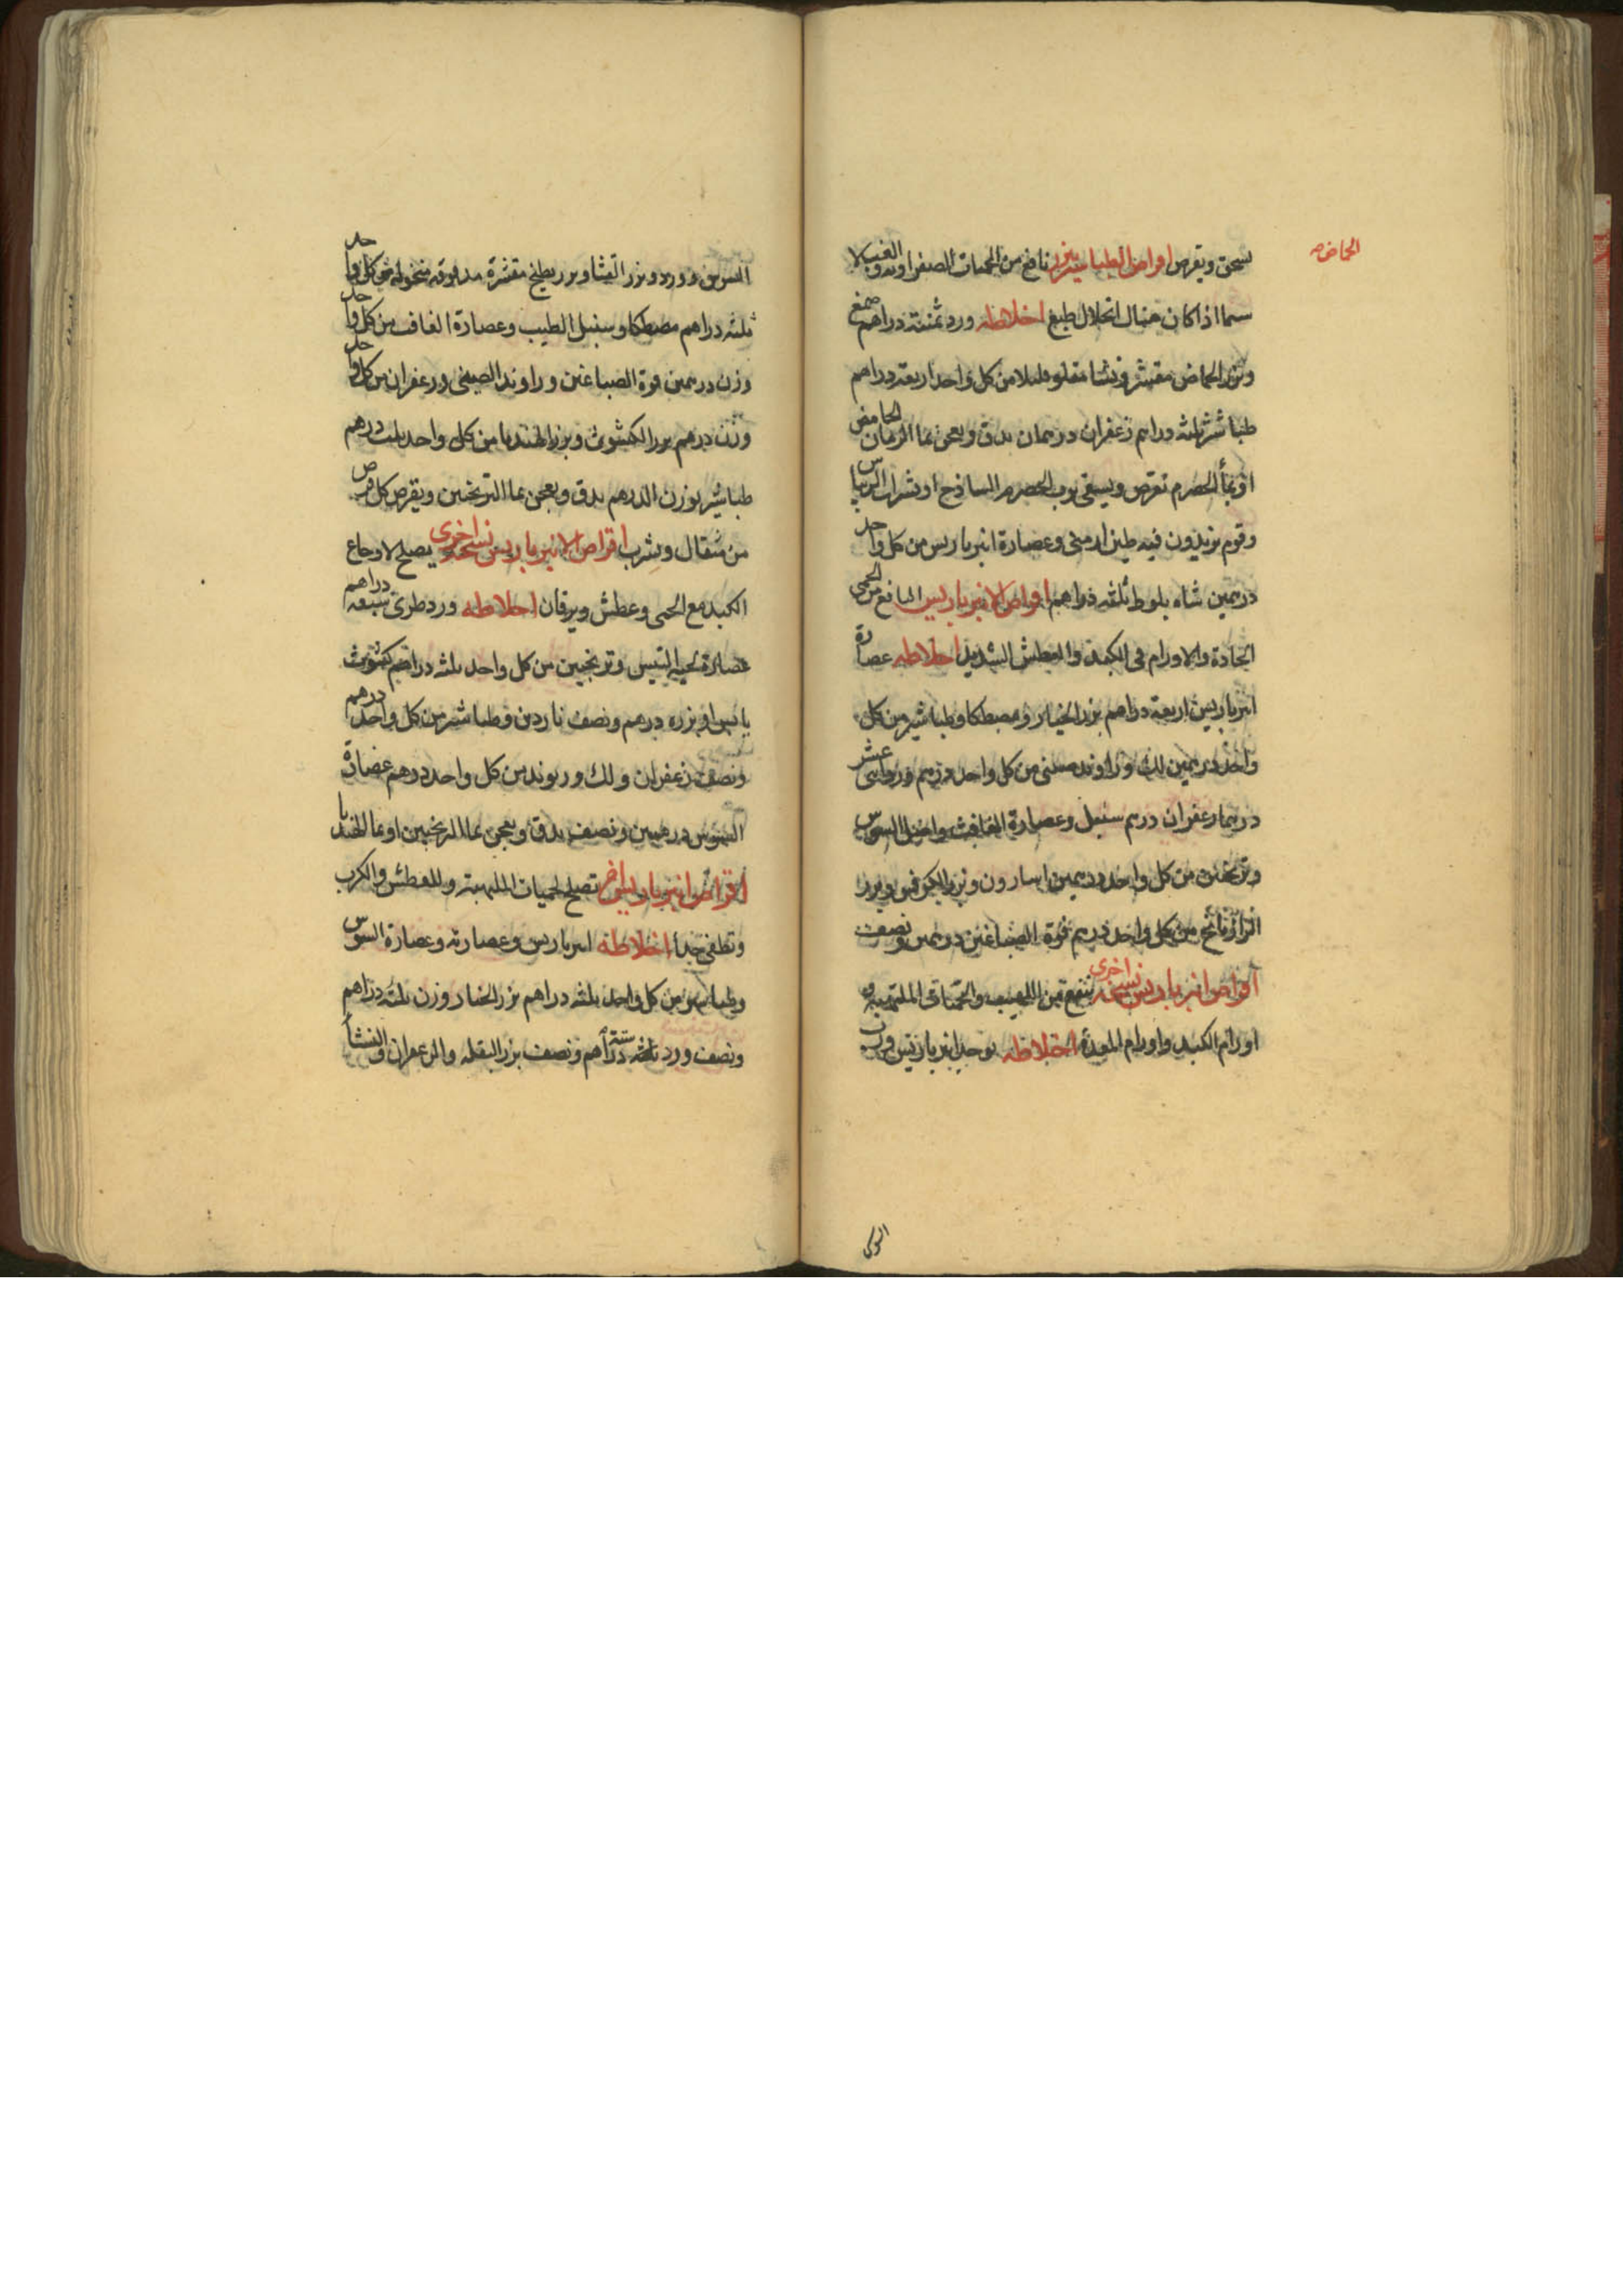 الحماض
يسحق ويقرص اقراص الطباشير بزر نافع من الحميات الصفراوية والغب لا
سيما اذا كان هناك انحلال طبع اخلاطه ورد ثمنية دراهم صمغ
وبزر الحماض مقشر ونشا مقلو قليلا من كل واحد اربعة دراهم
طباشير ثلثه دراهم زعفران درهمان يدق ويعجن بما الرمان الحامض
او بمأ الحصرم يقرص ويسقى برب الحصرم الساذج او بشراب الريباس
وقوم يزيدون فيه طين ارمنى وعصارة انبرباريس من كل واحد
درهمين شاه بلوط ثلثه دراهم اقراص الانبرباريس النافع من الحمى
الحادة والاورام فى الكبد والعطش الشديد اخلاطه عصارة
انبرباريس اربعة دراهم بزر الخيار ومصطكا وطباشير من كل
واحد درهمين لك وراوند صينى من كل واحد درهم ورد اثنى عشر
درهما زعفران درهم سنبل وعصارة الغافث واصل السوس
وترنجبين من كل واحد درهمين اسارون وبزر الكرفس وبزر
الرازيانج من كل واحد درهم فوة الصباغين درهمين ونصف
اقراص انبرباريس نسخه اخرى ينفع من اللهيب والحميات الملتهبة و
اورام الكبد واورام المعدة اخلاطه يوخذ انبرباريس ورب
السوس
السوس وورد وبزر القثا وبزر بطيخ مقشرة مدقوقه منخوله من كل واحد
ثلثه دراهم مصطكا وسنبل الطيب وعصارة الغافت من كل واحد
وزن درهمين فوة الصباغين وراوند الصينى وزعفران من كل واحد
وزن درهم بزر الكشوث وبزر الهندبا من كل واحد ثلث درهم
طباشير بوزن الدرهم يدق ويعجن بما الترنجبين ويقرص كل قرص
من مثقال ويشرب اقراص الانبرباريس نسخه اخرى يصلح لاوجاع
الكبد مع الحمى وعطش ويرقان اخلاطه ورد طرى سبعه دراهم
عصارة لحية التيس وترنجبين من كل واحد ثلثه دراهم كشوث
يابس او بزره درهم ونصف ناردين وطباشير من كل واحد درهم
ونصف زعفران ولك وريوند من كل واحد درهم عصارة
السوس درهمين ونصف يدق ويعجن بما الترنجبين او بما الهندبا
اقراص انبرباريس اخر تصلح لحميات الملهبة وللعطش والكرب
وتطفى جدا اخلاطه انبرباريس وعصارته وعصارة السوس
وطباشير من كل واحد ثلثه دراهم بزر الخيار وزن ثلثه دراهم
ونصف ورد ستة دراهم ونصف بزر البقله والزعفران والنشأ